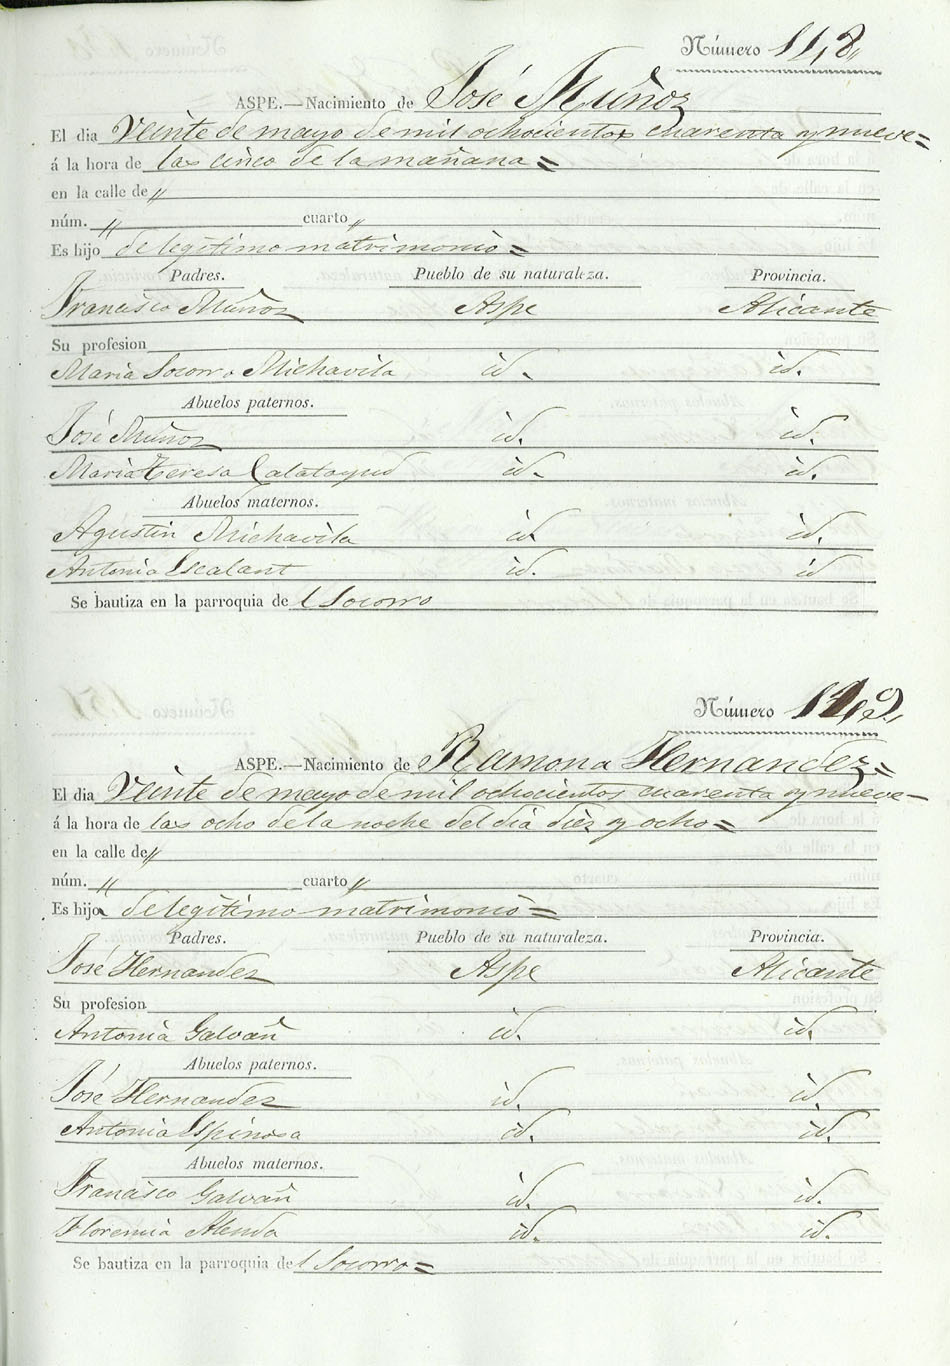 Número 118,,
ASPE.—Nacimiento de José Muñoz
El dia Veinte de mayo de mil ochocientos cuarenta y nueve=
á la hora de las cinco de la mañana=
en la calle de „
núm. „ cuarto „
Es hijo de legitimo matrimonio=
Padres. Pueblo de su naturaleza. Provincia.
Francisco Muñoz Aspe Alicante
Su profesion
Maria Socorro Michavila id. id.
Abuelos paternos.
José Muñoz id. id.
Maria Teresa Calatayud id. id.
Abuelos maternos.
Agustin Michavila id. id.
Antonia Escalant id. id
Se bautiza en la parroquia del Socorro
Número 119,,
ASPE.—Nacimiento de Ramona Hernandez=
El dia Veinte de mayo de mil ochocientos cuarenta y nueve—
á la hora de las ocho de la noche del dia diez y ocho=
en la calle de „
núm. „ cuarto „
Es hija de legitimo matrimonio=
Padres. Pueblo de su naturaleza. Provincia.
José Hernandez Aspe Alicante
Su profesion
Antonia Galvañ id. id.
Abuelos paternos.
José Hernandez id. id.
Antonia Espinosa id. id.
Abuelos maternos.
Francisco Galvañ id. id.
Florencia Alenda id. id.
Se bautiza en la parroquia del Socorro=